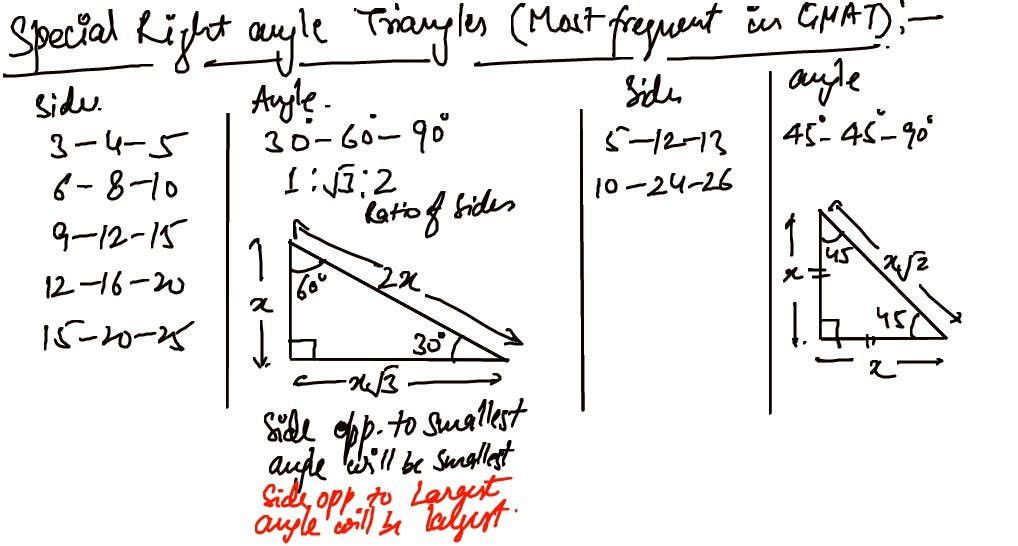 Special Right angle Triangles (Most frequent in GMAT):-
Side
3-4-5
6-8-10
9-12-15
12-16-20
15-20-25
Angle.
30°-60°-90°
1:√3:2
Ratio of Sides
x
60°
2x
30°
x√3
Side opp. to smallest
angle will be smallest
Side opp to Largest
angle will be largest.
Side
5-12-13
10-24-26
angle
45°-45°-90°
45
x
x√2
45
x